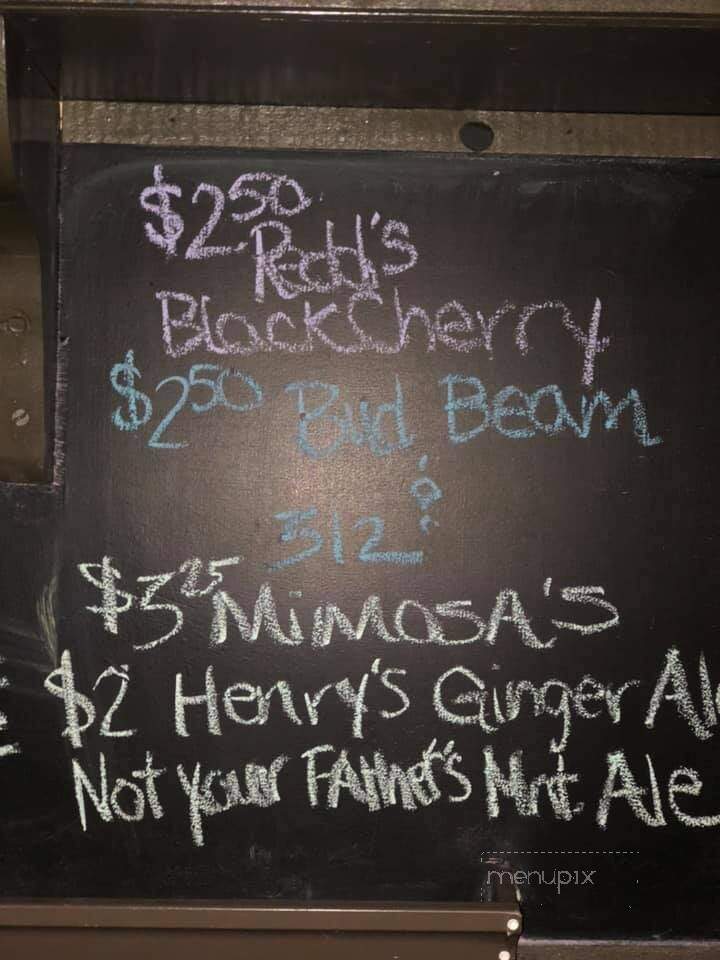 $2.50
Redd's
Black Cherry
$2.50 Bud Beam
&
312
$3.25 Mimosa's
$2 Henry's Ginger Al
Not your Father's Mnt Ale
menupix